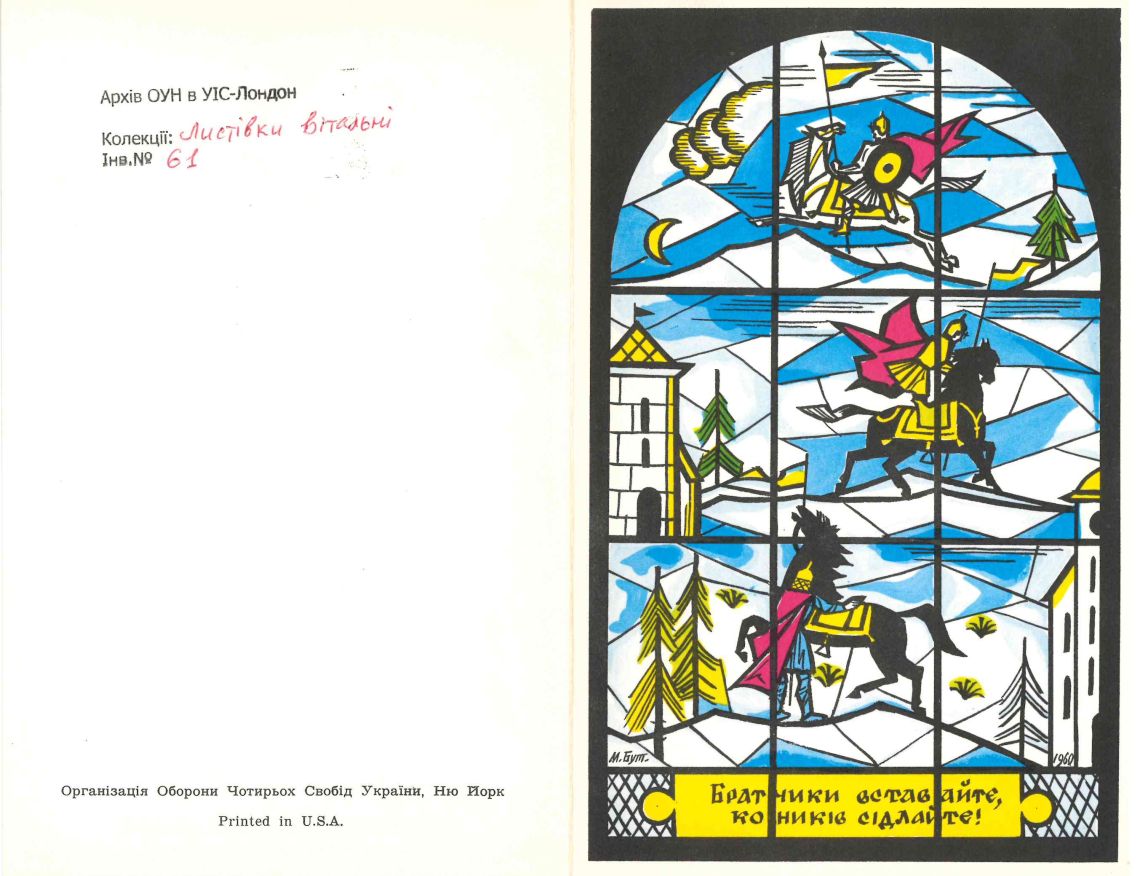 Архів ОУН в УІС-Лондон
Колекції: Листівки вітальні
Інв.№ 61
Організація Оборони Чотирьох Свобід України, Ню Йорк
Printed in U.S.A.
М. Бут.
1960
Братчики вставайте,
коників сідлайте!